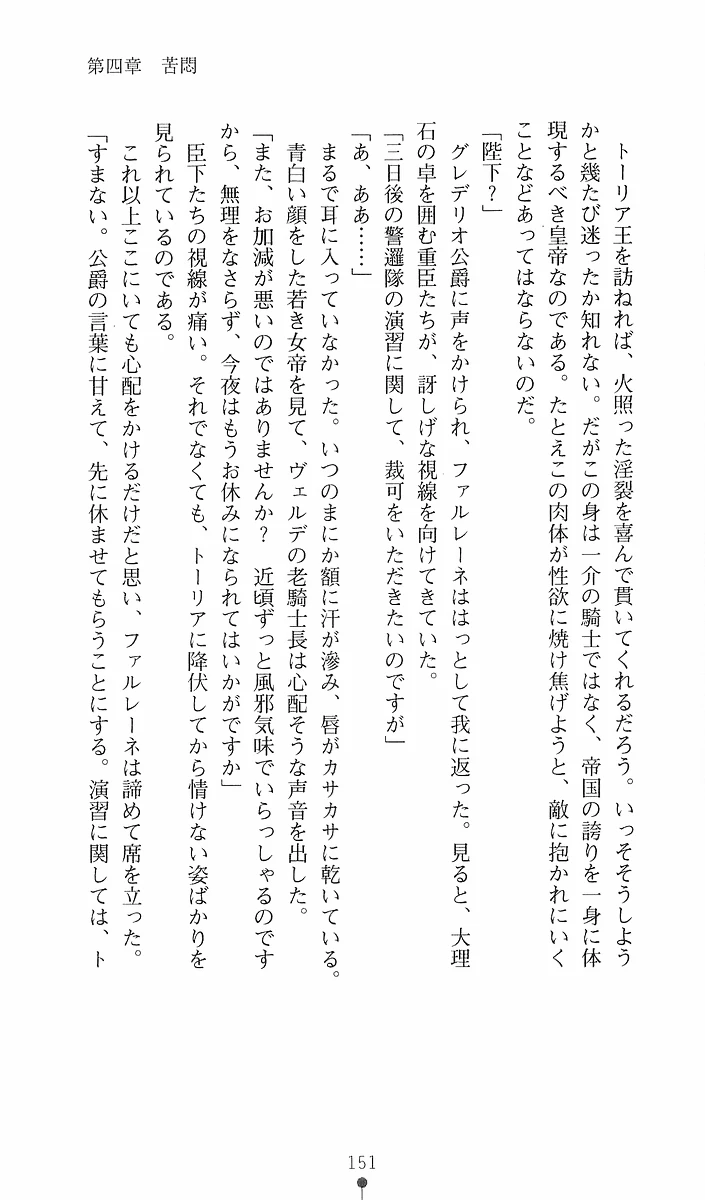 第四章　苦悶
トーリア王を訪ねれば、火照った淫裂を喜んで貫いてくれるだろう。いっそそうしよう
かと幾たび迷ったか知れない。だがこの身は一介の騎士ではなく、帝国の誇りを一身に体
現するべき皇帝なのである。たとえこの肉体が性欲に焼け焦げようと、敵に抱かれにいく
ことなどあってはならないのだ。
「陛下？」
グレデリオ公爵に声をかけられ、ファルレーネははっとして我に返った。見ると、大理
石の卓を囲む重臣たちが、訝しげな視線を向けてきていた。
「三日後の警邏隊の演習に関して、裁可をいただきたいのですが」
「あ、ああ……」
まるで耳に入っていなかった。いつのまにか額に汗が滲み、唇がカサカサに乾いている。
青白い顔をした若き女帝を見て、ヴェルデの老騎士長は心配そうな声音を出した。
「また、お加減が悪いのではありませんか？　近頃ずっと風邪気味でいらっしゃるのです
から、無理をなさらず、今夜はもうお休みになられてはいかがですか」
臣下たちの視線が痛い。それでなくても、トーリアに降伏してから情けない姿ばかりを
見られているのである。
これ以上ここにいても心配をかけるだけだと思い、ファルレーネは諦めて席を立った。
「すまない。公爵の言葉に甘えて、先に休ませてもらうことにする。演習に関しては、ト
151